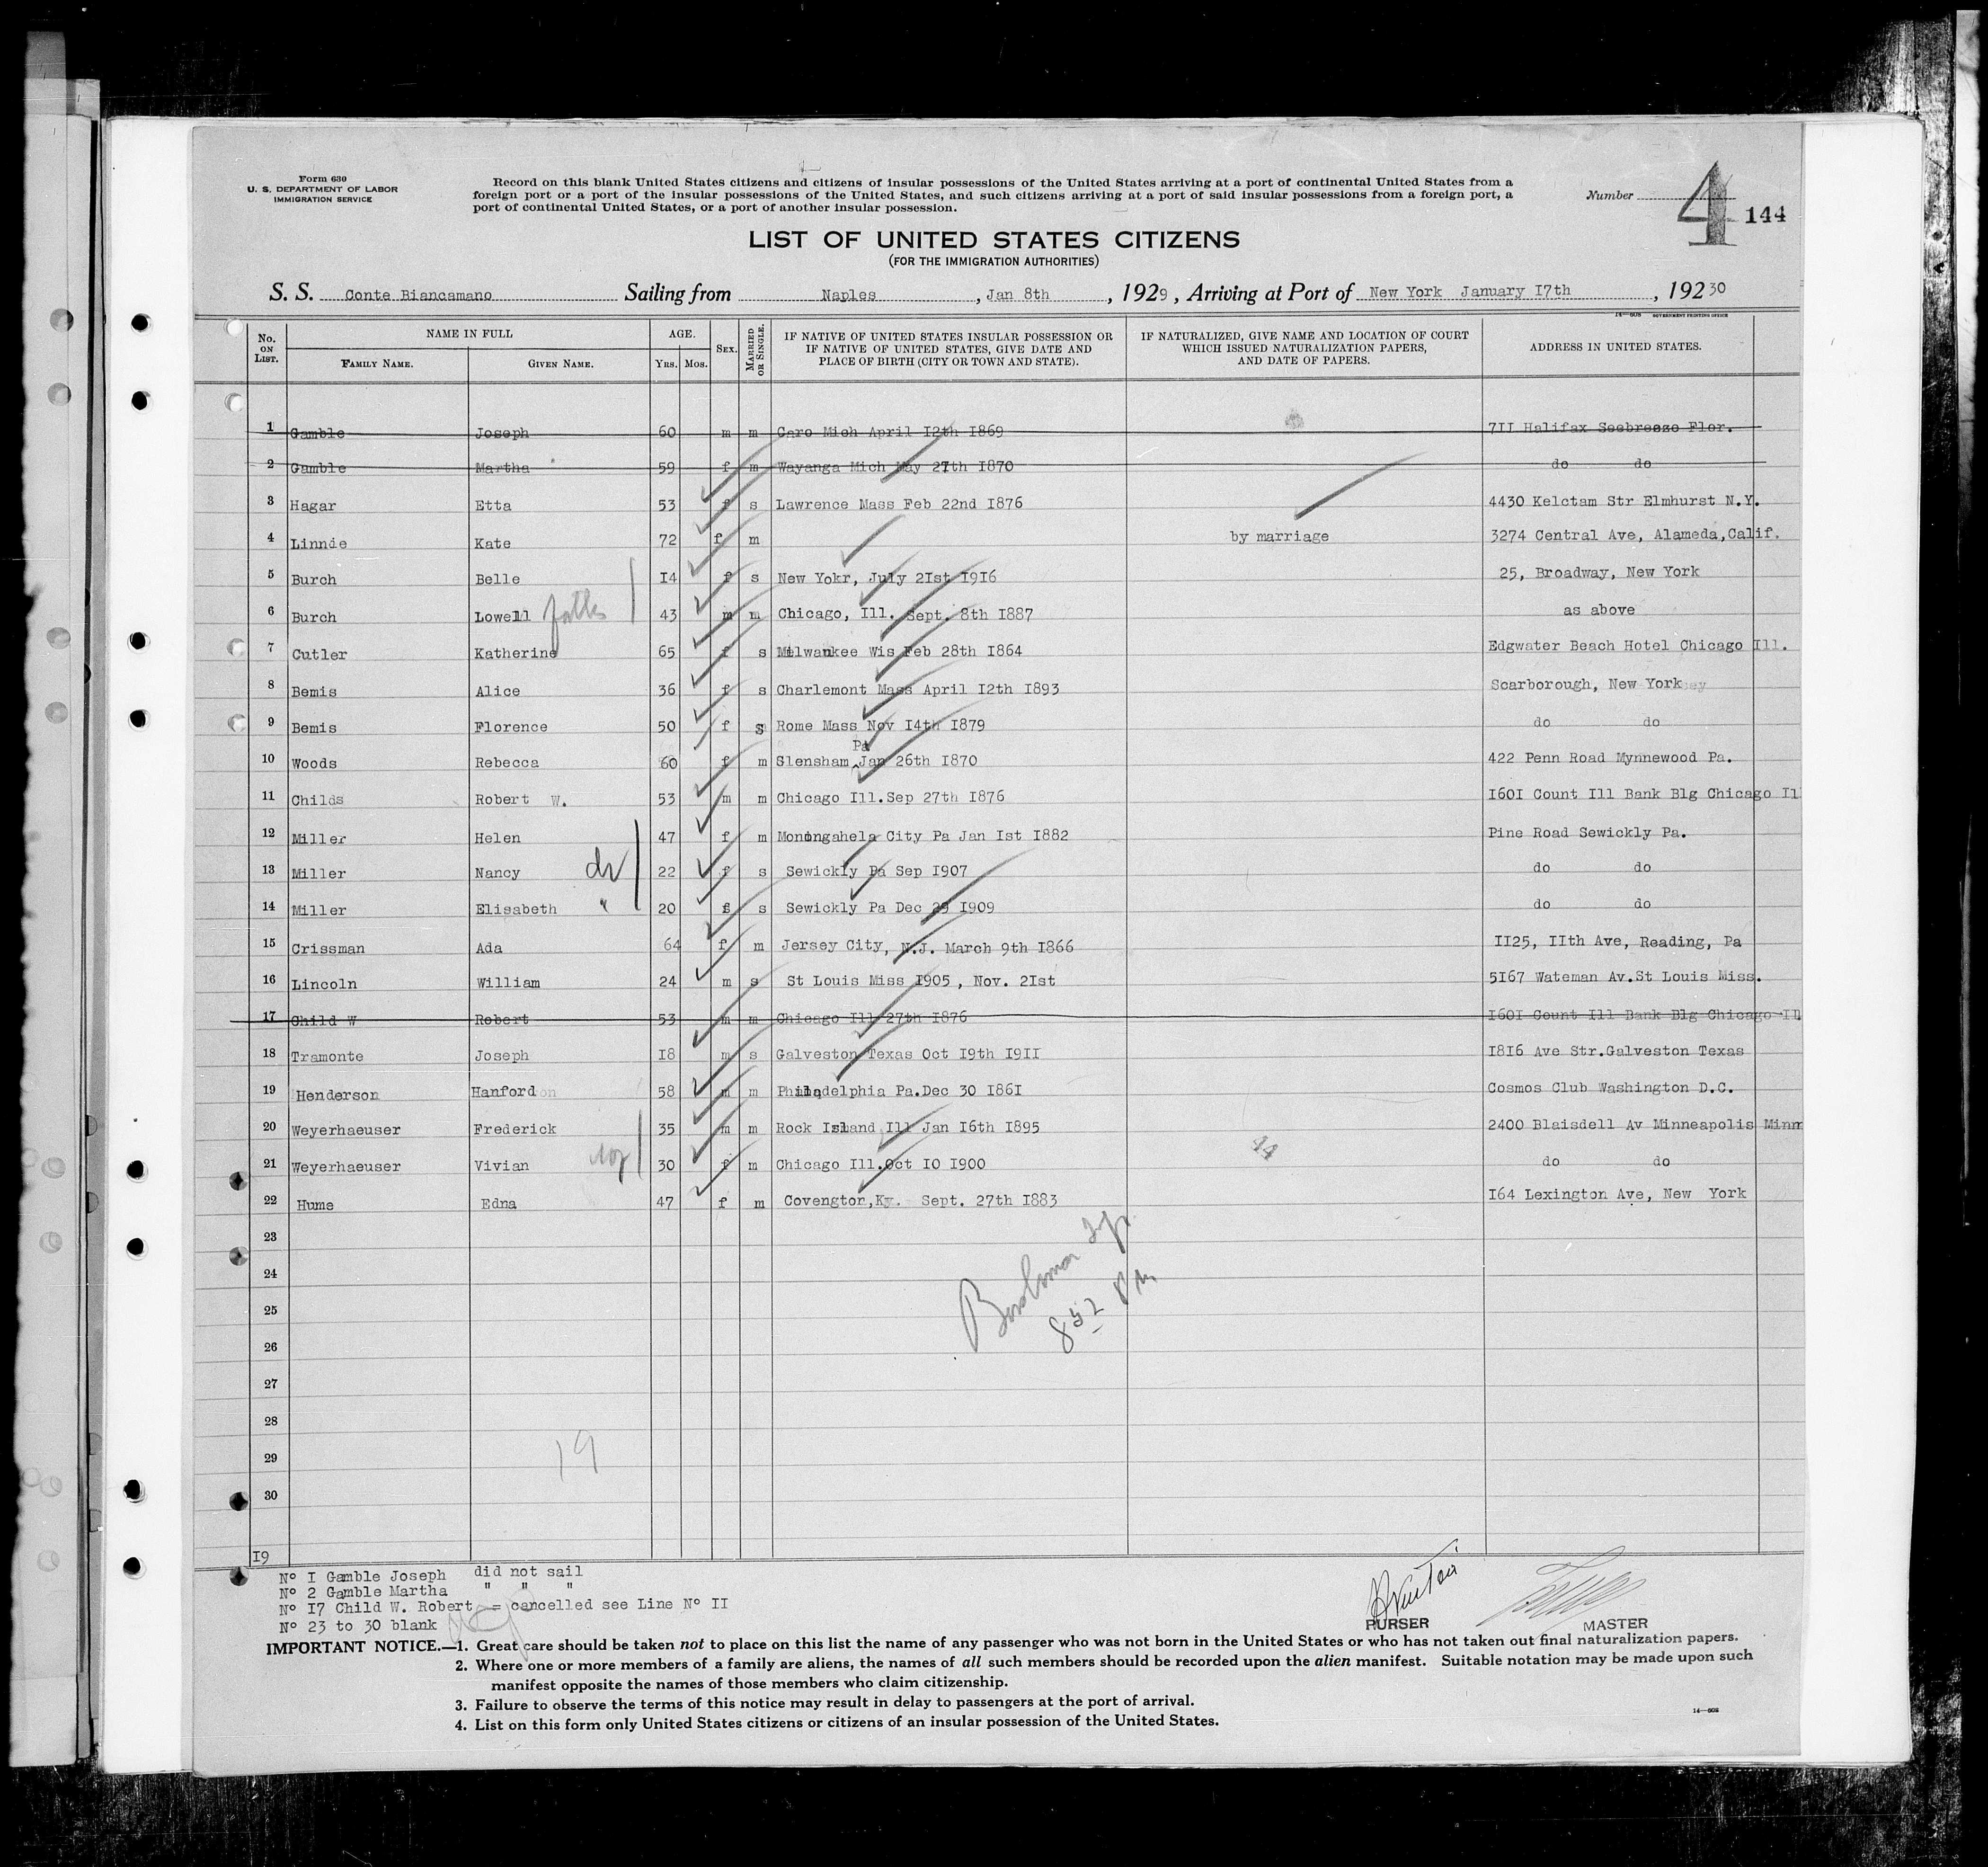 Form 630
U. S. DEPARTMENT OF LABOR
IMMIGRATION SERVICE
Record on this blank United States citizens and citizens of insular possessions of the United States arriving at a port of continental United States from a
foreign port or a port of the insular possessions of the United States, and such citizens arriving at a port of said insular possessions from a foreign port, a
port of continental United States, or a port of another insular possession.
Number 4 144
LIST OF UNITED STATES CITIZENS
(FOR THE IMMIGRATION AUTHORITIES)
S. S. Conte Biancamano Sailing from Naples, Jan 8th, 1929, Arriving at Port of New York January I7th, 19230
14—608 GOVERNMENT PRINTING OFFICE
No. ON LIST. NAME IN FULL FAMILY NAME. GIVEN NAME. AGE. YRS. MOS. SEX. MARRIED OR SINGLE. IF NATIVE OF UNITED STATES INSULAR POSSESSION OR IF NATIVE OF UNITED STATES, GIVE DATE AND PLACE OF BIRTH (CITY OR TOWN AND STATE). IF NATURALIZED, GIVE NAME AND LOCATION OF COURT WHICH ISSUED NATURALIZATION PAPERS, AND DATE OF PAPERS. ADDRESS IN UNITED STATES.
1 Gamble Joseph 60 m m Caro Mich April I2th I869 7II Halifax Seebreeze Flor.
2 Gamble Martha 59 f m Wayanga Mich May 27th I870 do do
3 Hagar Etta 53 f s Lawrence Mass Feb 22nd I876 4430 Kelctam Str Elmhurst N.Y.
4 Linnie Kate 72 f m by marriage 3274 Central Ave, Alameda,Calif.
5 Burch Belle I4 f s New Yokr, July 2Ist I9I6 25, Broadway, New York
6 Burch Lowell 43 m m Chicago, Ill. Sept. 8th I887 as above
7 Cutler Katherine 65 f s Milwaukee Wis Feb 28th I864 Edgwater Beach Hotel Chicago Ill.
8 Bemis Alice 36 f s Charlemont Mass April I2th I893 Scarborough, New York
9 Bemis Florence 50 f s Rome Mass Nov I4th I879 do do
10 Woods Rebecca 60 f m Slensham Pa Jan 26th I870 422 Penn Road Mynnewood Pa.
11 Childs Robert W. 53 m m Chicago Ill.Sep 27th I876 I60I Count Ill Bank Blg Chicago Il
12 Miller Helen 47 f m Monongahela City Pa Jan Ist I882 Pine Road Sewickly Pa.
13 Miller Nancy 22 f s Sewickly Pa Sep I907 do do
14 Miller Elisabeth " 20 f s Sewickly Pa Dec 29 I909 do do
15 Crissman Ada 64 f m Jersey City, N.J. March 9th I866 II25, IIth Ave, Reading, Pa
16 Lincoln William 24 m s St Louis Miss I905, Nov. 2Ist 5I67 Wateman Av.St Louis Miss.
17 Child W Robert 53 m m Chicago Ill 27th I876 I60I Count Ill Bank Blg Chicago Il
18 Tramonte Joseph I8 m s Galveston Texas Oct I9th I9II I8I6 Ave Str.Galveston Texas
19 Henderson Hanford 58 m m Philadelphia Pa.Dec 30 I86I Cosmos Club Washington D.C.
20 Weyerhaeuser Frederick 35 m m Rock Island Ill Jan I6th I895 2400 Blaisdell Av Minneapolis Minn
21 Weyerhaeuser Vivian 30 f m Chicago Ill.Oct IO I900 do do
22 Hume Edna 47 f m Covengton,Ky. Sept. 27th I883 I64 Lexington Ave, New York
23
24
25
26
27
28
29
30
19
I9
Nº I Gamble Joseph did not sail
Nº 2 Gamble Martha " " "
Nº I7 Child W. Robert = cancelled see Line Nº II
Nº 23 to 30 blank
PURSER MASTER
IMPORTANT NOTICE.—1. Great care should be taken not to place on this list the name of any passenger who was not born in the United States or who has not taken out final naturalization papers.
2. Where one or more members of a family are aliens, the names of all such members should be recorded upon the alien manifest. Suitable notation may be made upon such
manifest opposite the names of those members who claim citizenship.
3. Failure to observe the terms of this notice may result in delay to passengers at the port of arrival.
4. List on this form only United States citizens or citizens of an insular possession of the United States.
14—608